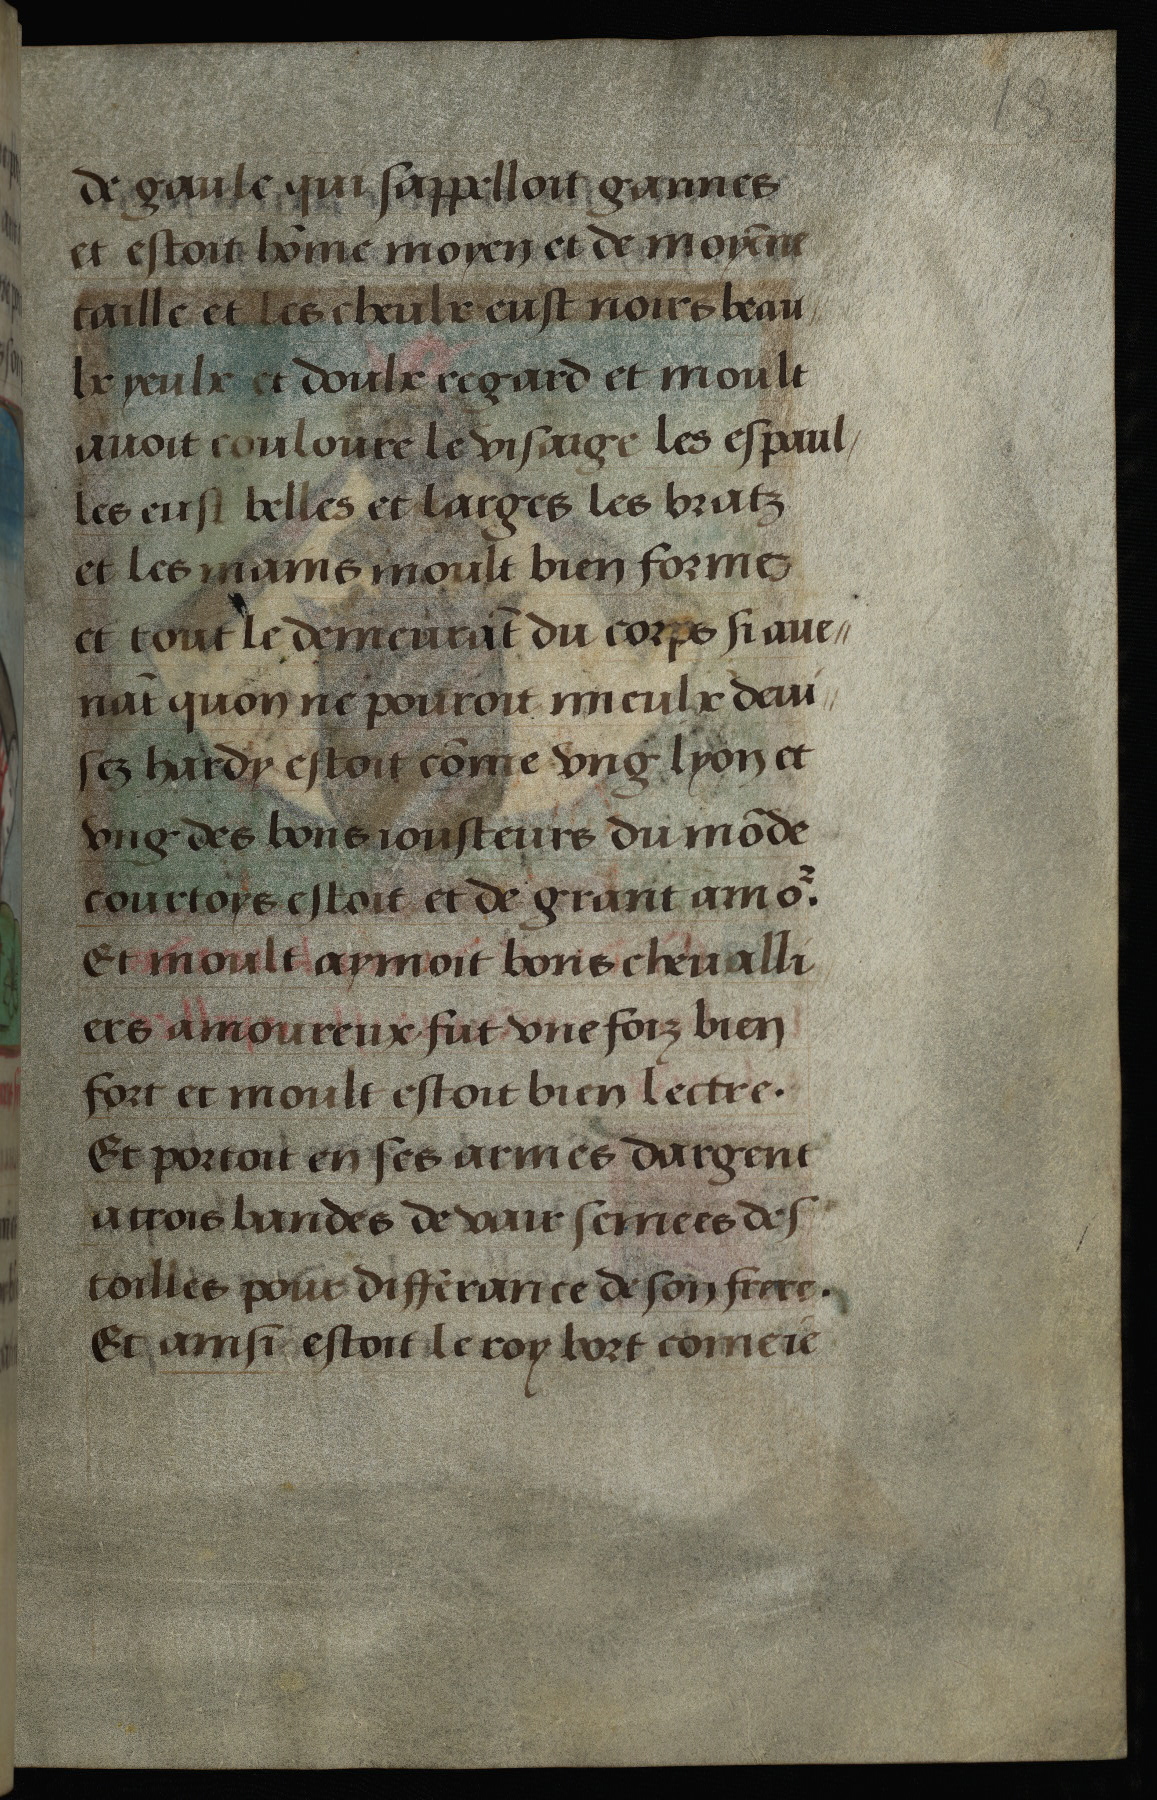 18
de gaule qui sappelloit gannes
et estoit hōme moyen et de moyēne
taille et les cheulx eust noirs beau/
lx yeulx et doulx regard et moult
auoit couloure le visaige les espaul/
les eust belles et larges les bratz
et les mains moult bien formes
et tout le demeurāt du corps si aue//
nāt quon ne pouroit mieulx deui//
sez hardy estoit cōme vng lyon et
vng des bons iousteurs du mōde
courtoys estoit et de grant amoᷣ.
Et moult aymoit bons cheualli
ers amoureux fut vne foiz bien
fort et moult estoit bien lectre.
Et portoit en ses armes dargent
a trois bandes de vair semees des
toilles pour differance de son frere.
Et ainsi estoit le roy bort